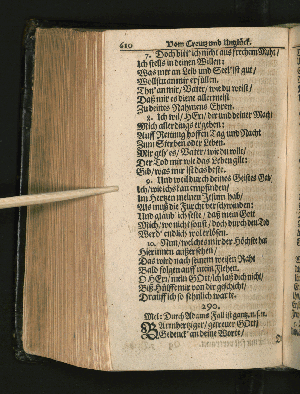 610 Vom Creutz und Unglück.
7. Doch diß ich nicht aus frechem Muht/
Ich stells in deinen Willen:
Was mir an Leib und Seel ist gut/
Wollst du an mir erfüllen.
Thu' an mir/ Vater/ wie du weist/
Daß mir es diene allermeist
Zu deines Nahmens Ehren.
8. Ich wil/ HErr/ dir und deiner Macht
Mich allerdings ergeben:
Auff Rettung hoffen Tag und Nacht
Zum Sterben oder Leben.
Mir geh' es/ Vater/ wie du wilt/
Der Tod mir wie das Leben gilt:
Gib/ was mir ist das beste.
9. Und weil durch deines Geistes
Ich/ wie ichs kan empfinden/
Im Hertzen meinen JEsum hab/
Als muß die Furcht verschwinden:
Und gläub' ich feste/ daß mein Gott
Mich/ wo nicht sonst/ doch durch den Tod
Werd' endlich wol erlösen.
10. Nun/ welches mir der Höchste hat
Hierinnen außersehen/
Das wird nach seinem weisen Raht
Bald folgen auff mein Flehen.
O HErr/ mein GOtt/ Ich laß dich nicht/
Biß Hülffe mir von dir geschicht/
Drauff ich so sehnlich warte.
290.
Mel: Durch Adams Fall ist gantz/
BArmhertziger/ getreuer GOtt/
Gedenck' an deine Worte/